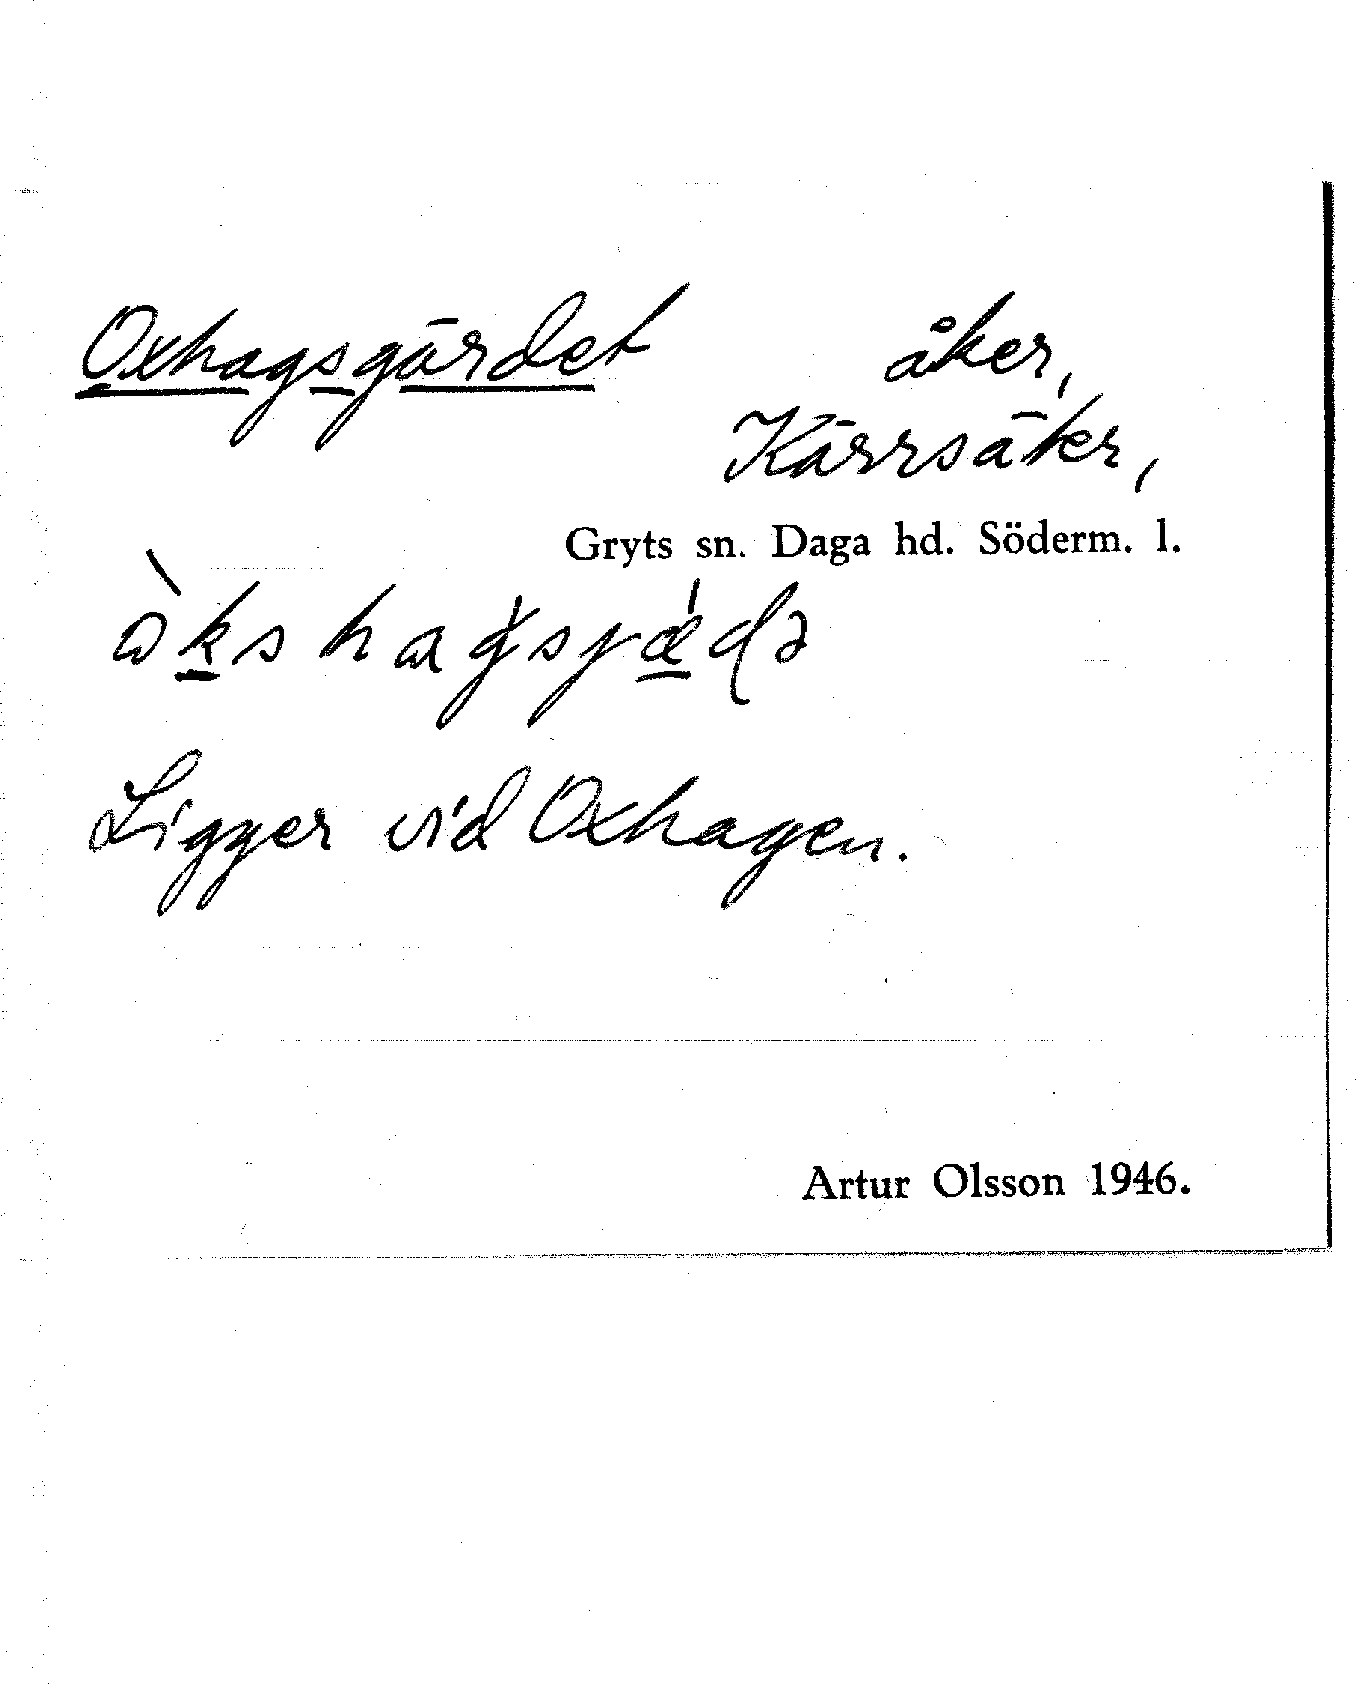 Oxhagsgärdet åker,
Kärrsäker,
Gryts sn. Daga hd. Söderm. l.
Ligger vid Oxhagen.
Artur Olsson 1946.